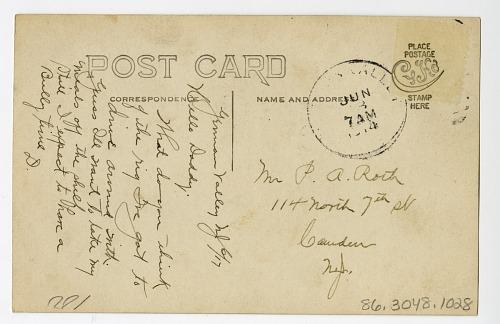 POST CARD
CORRESPONDENCE
NAME AND ADDRESS
PLACE
POSTAGE
STAMP
HERE
VALLEY
JUN
7 AM
1914
German Valley, NJ 6/17
Hello Daddy:
What do you think
of the rig I've got to
drive around with.
Guess I'll want to take my
meals off the shelf
Still I expect to have a
Bully time
D.
Mr P. A. Roth
114 North 7th St
Camden
N.J.
201
86.3048.1028